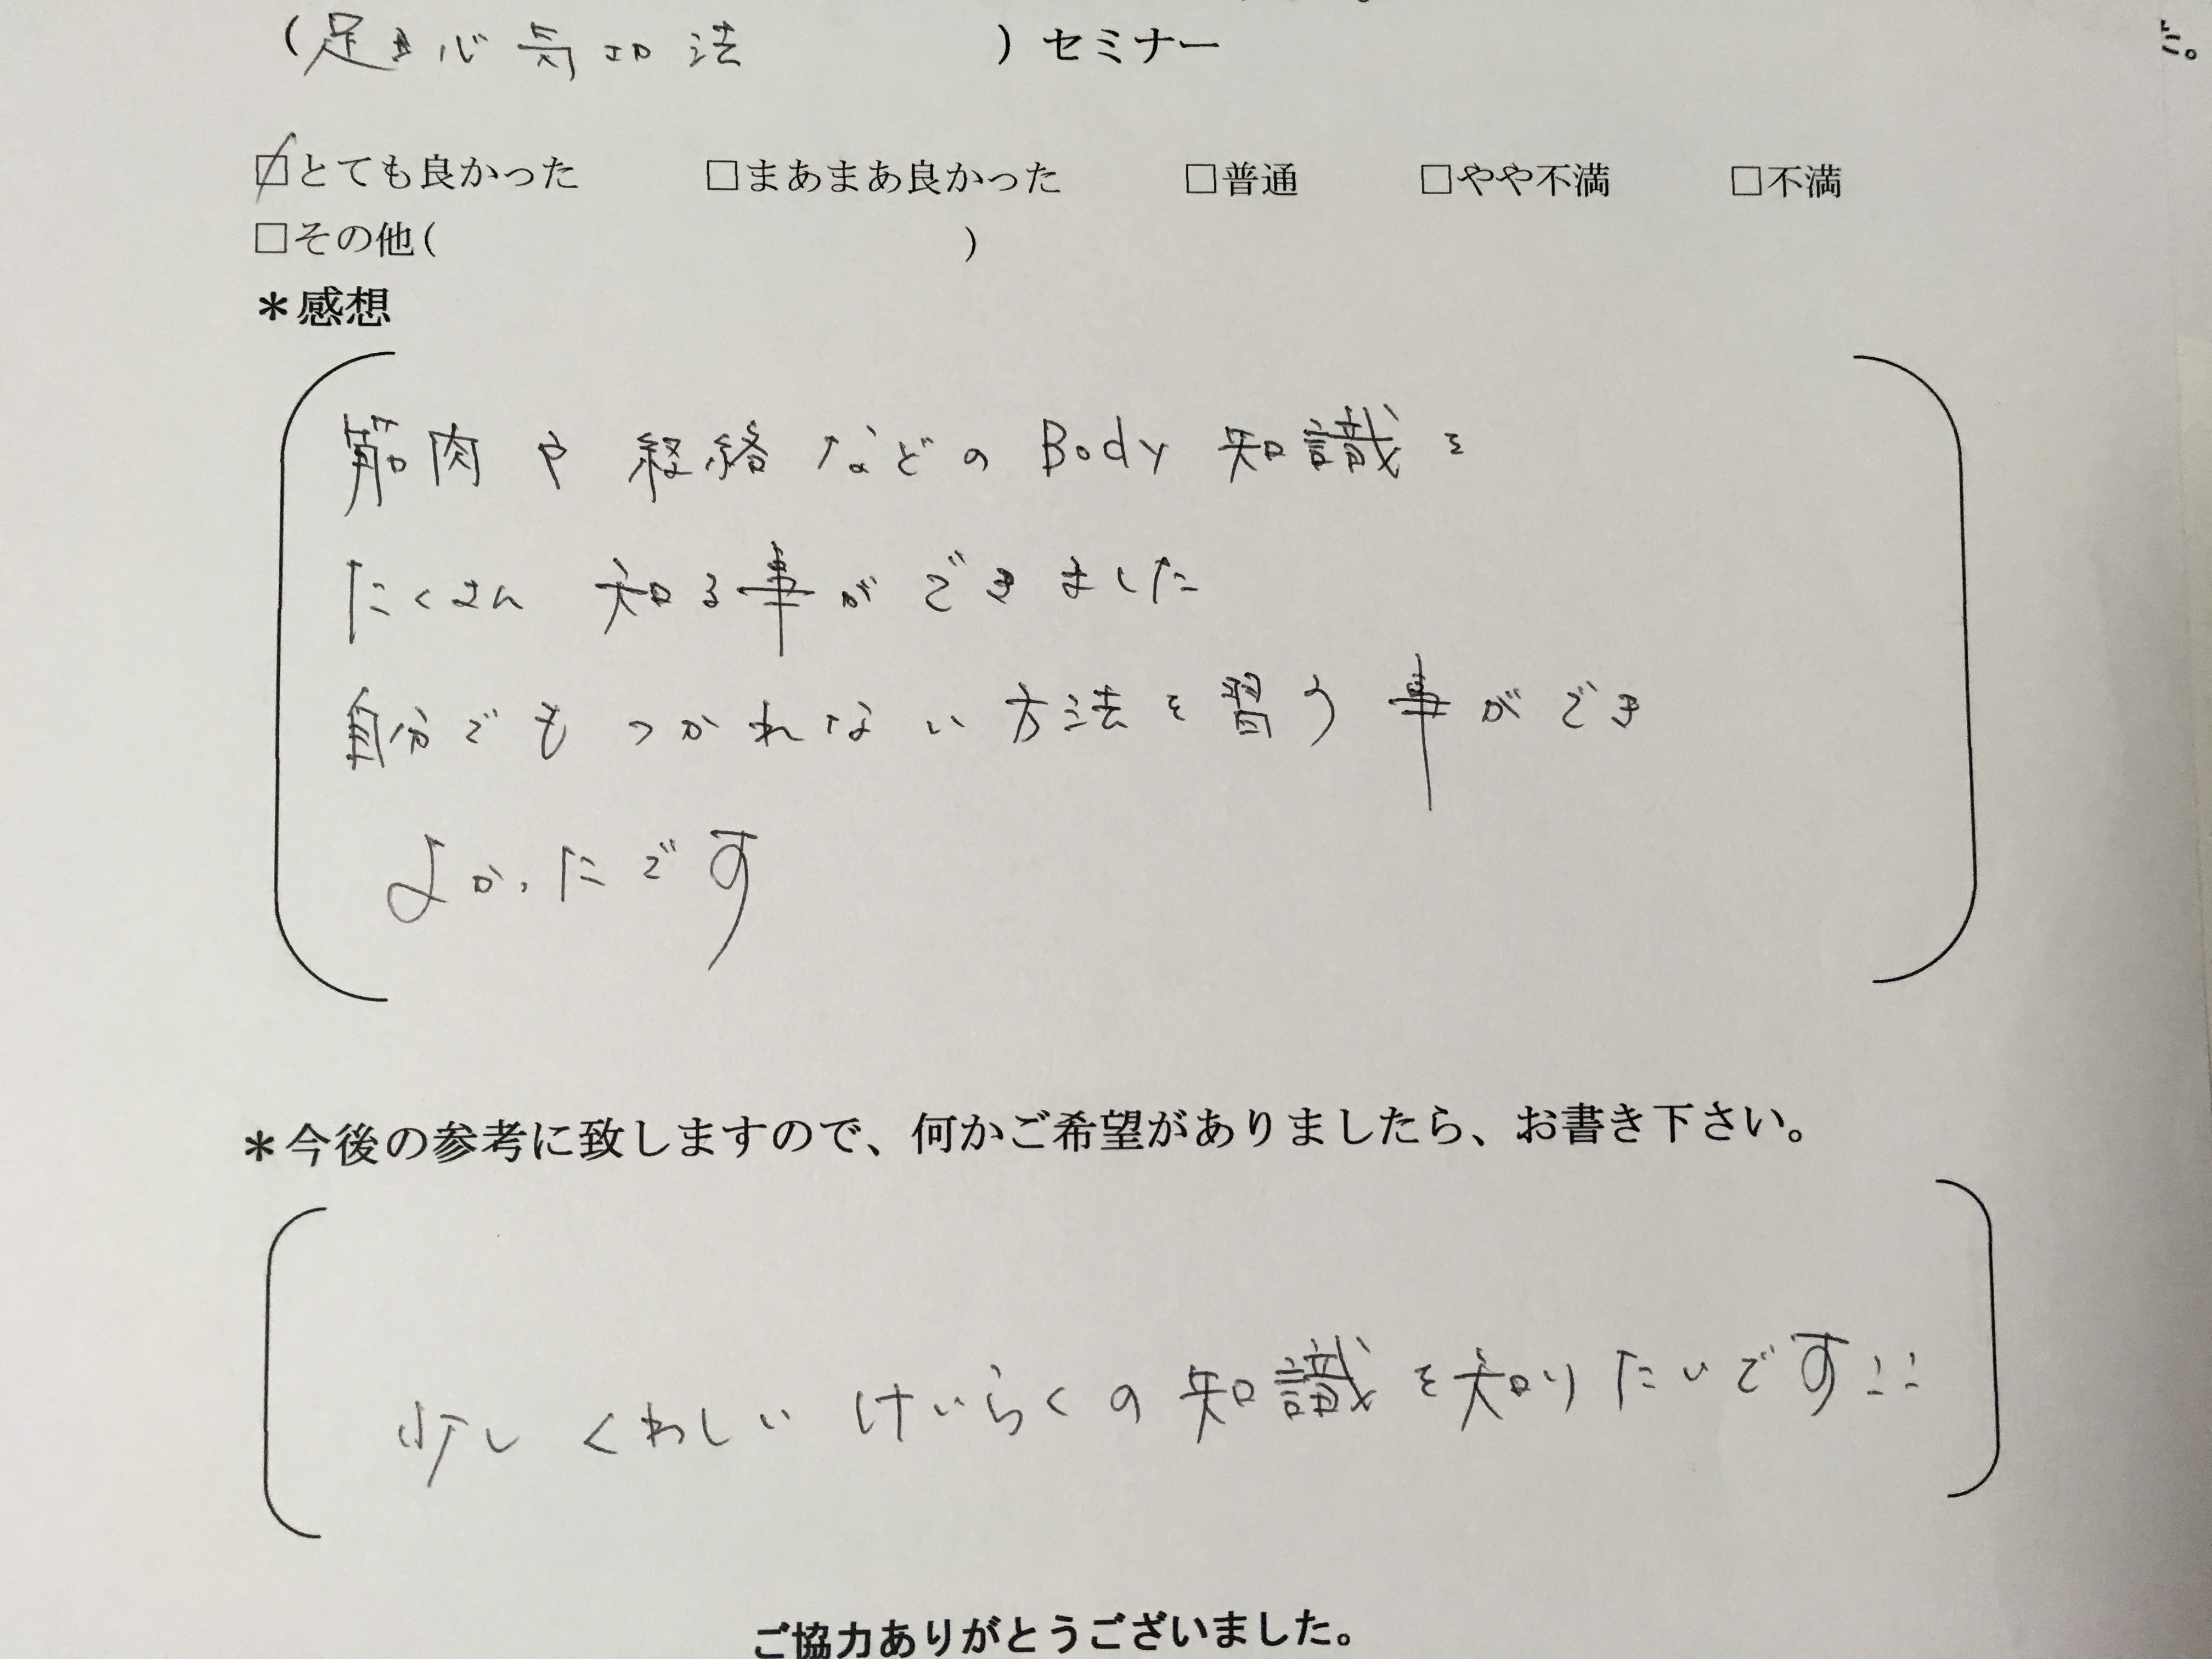 (足圭心気功法 ) セミナー
☑とても良かった □まあまあ良かった □普通 □やや不満 □不満
□その他( )
＊感想
筋肉や経絡などのBody知識を
たくさん知る事ができました
自分でもつかれない方法を習う事ができ
よかったです
＊今後の参考に致しますので、何かご希望がありましたら、お書き下さい。
少しくわしいけいらくの知識を知りたいです!!
ご協力ありがとうございました。